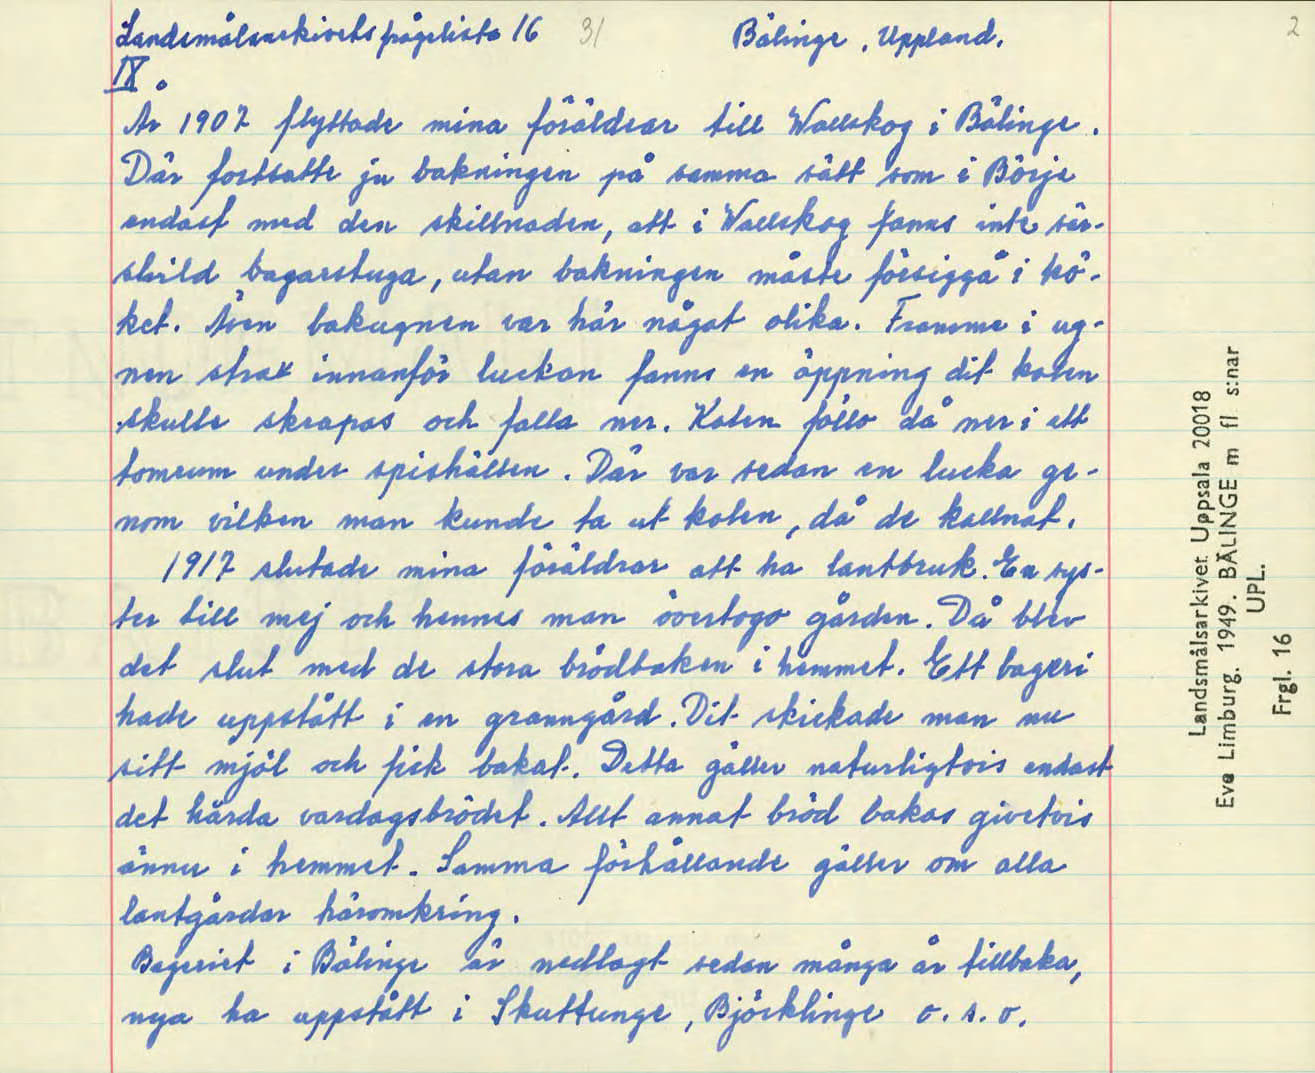 Landsmålsarkivets frågelista 16 31 Bälinge, Uppland. 2
IX.
År 1907 flyttade mina föräldrar till Wallskog i Bälinge.
Där fortsatte ju bakningen på samma sätt som i Börje
endast med den skillnaden, att i Wallskog fanns inte sär-
skild bagarstuga, utan bakningen måste försiggå i kö-
ket. Även bakugnen var här något olika. Framme i ug-
nen strax innanför luckan fanns en öppning dit kolen
skulle skrapas och falla ner. Kolen föllo då ner i ett
tomrum under spishällen. Där var sedan en lucka ge-
nom vilken man kunde ta ut kolen, då de kallnat.
1917 slutade mina föräldrar att ha lantbruk. En sys-
ter till mej och hennes man övertogo gården. Då blev
det slut med de stora brödbaken i hemmet. Ett bageri
hade uppstått i en granngård. Dit skickade man nu
sitt mjöl och fick bakat. Detta gäller naturligtvis endast
det hårda vardagsbrödet. Allt annat bröd bakas givetvis
ännu i hemmet. Samma förhållande gäller om alla
lantgårdar häromkring.
Bageriet i Bälinge är nedlagt sedan många år tillbaka,
nya ha uppstått i Skuttunge, Björklinge o.s.v.
Landsmålsarkivet Uppsala 20018
Eva Limburg. 1949. BÄLINGE m fl s:nar
UPL.
Frgl. 16